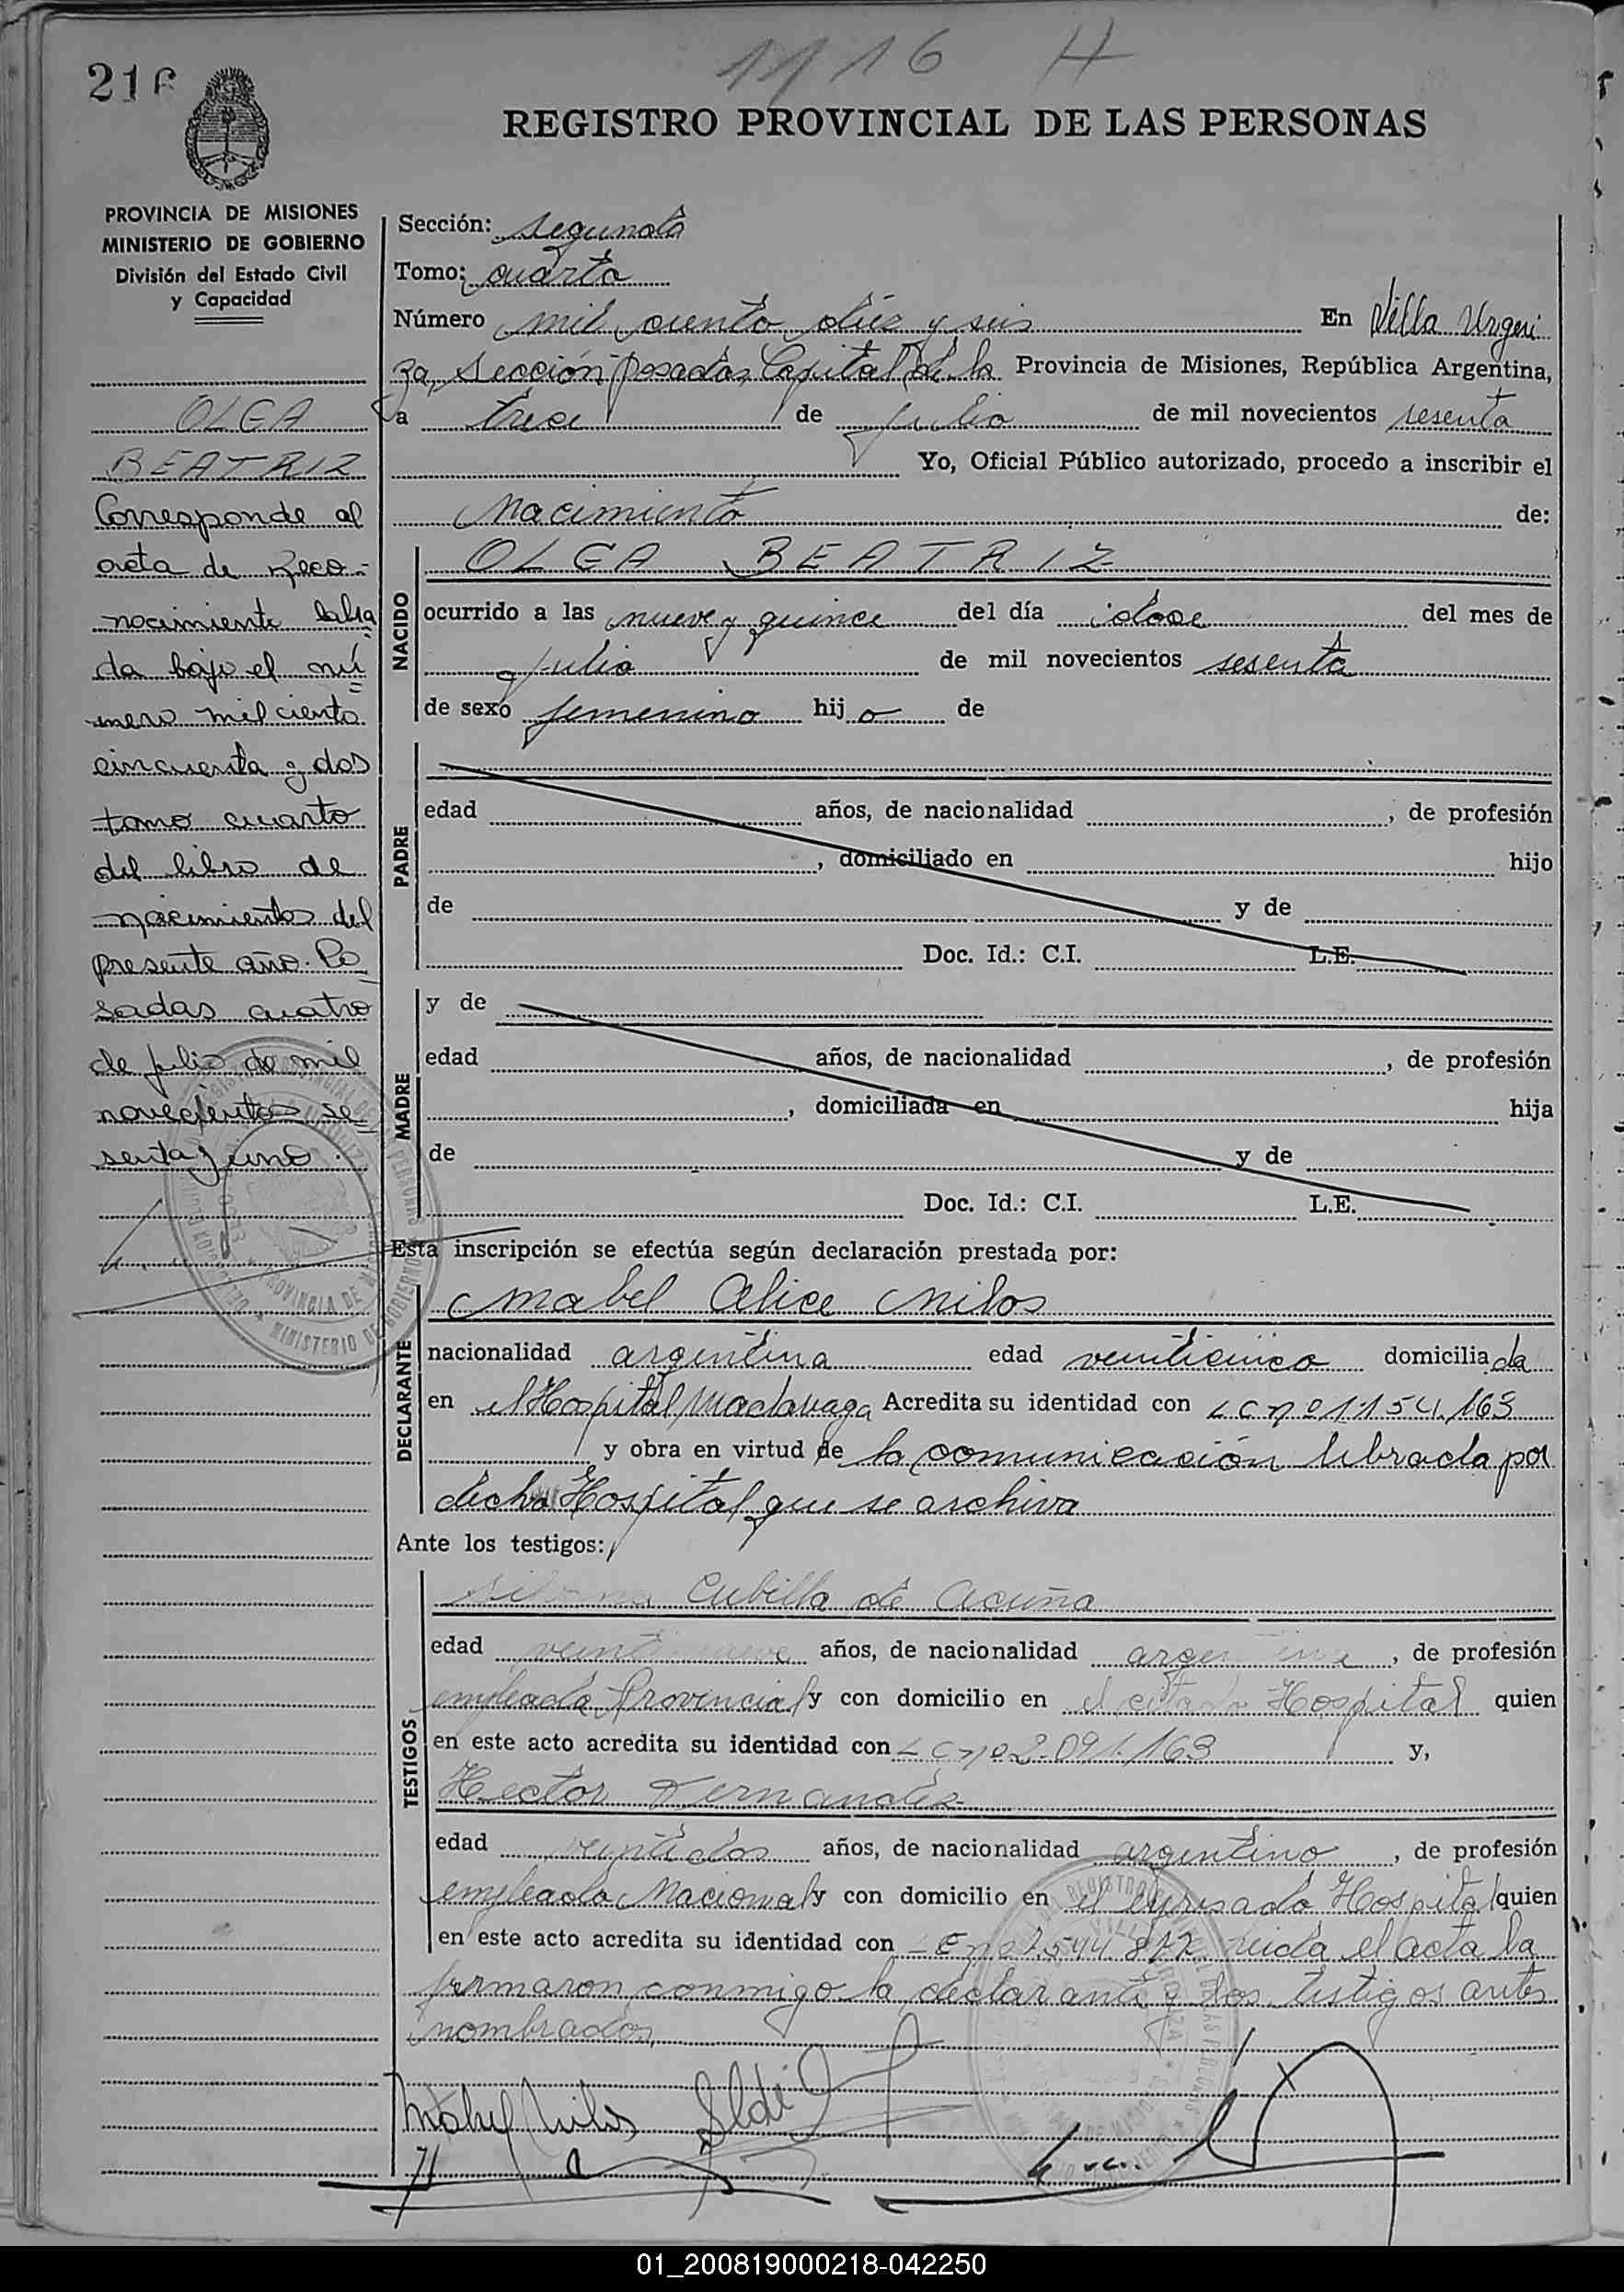 1116 H
216
REGISTRO PROVINCIAL DE LAS PERSONAS
PROVINCIA DE MISIONES
MINISTERIO DE GOBIERNO
División del Estado Civil
y Capacidad
OLGA
BEATRIZ
Corresponde al
acta de Reco-
nocimiento labra
da bajo el nú
mero mil ciento
cincuenta y dos
tomo cuarto
del libro de
nacimientos del
presente año. Po
sadas cuatro
de julio de mil
novecientos se
senta y uno.
Sección: segunda
Tomo: cuarto
Número mil ciento diez y seis En Villa Urqui
za, Sección Posadas Capital de la Provincia de Misiones, República Argentina,
a trece de julio de mil novecientos sesenta
Yo, Oficial Público autorizado, procedo a inscribir el
Nacimiento de:
NACIDO
OLGA BEATRIZ
ocurrido a las nueve y quince del día doce del mes de
julio de mil novecientos sesenta
de sexo femenino hij a de
PADRE
edad años, de nacionalidad , de profesión
, domiciliado en hijo
de y de
Doc. Id.: C.I. L.E.
MADRE
y de
edad años, de nacionalidad , de profesión
, domiciliada en hija
de y de
Doc. Id.: C.I. L.E.
Esta inscripción se efectúa según declaración prestada por:
DECLARANTE
Mabel Alice Milos
nacionalidad argentina edad veinticinco domiciliada
en el Hospital Madariaga Acredita su identidad con L C nº 1.154.163
y obra en virtud de la comunicación librada por
dicho Hospital que se archiva
Ante los testigos:
TESTIGOS
Cubilla de Acuña
edad veintinueve años, de nacionalidad argentina, de profesión
empleada Provincial y con domicilio en el citado Hospital quien
en este acto acredita su identidad con L C nº 2.091.163 y,
Hector Fernandez
edad veintidos años, de nacionalidad argentino, de profesión
empleado Nacional y con domicilio en el expresado Hospital quien
en este acto acredita su identidad con L E nº 7.544.872 leida el acta la
firmaron conmigo la declarante y los testigos antes
nombrados.
Mabel Milos
01_200819000218-042250